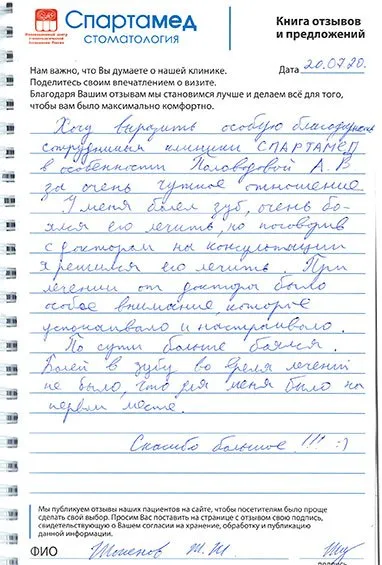 Спартамед
СТОМАТОЛОГИЯ
Книга отзывов
и предложений
Нам важно, что Вы думаете о нашей клинике.
Поделитесь своим впечатлением о визите.
Благодаря Вашим отзывам мы становимся лучше и делаем всё для того,
чтобы вам было максимально комфортно.
Дата 20.07.20.
Хочу выразить особую благодарность
сотрудникам клиники СПАРТАМЕД
в особенности Половодовой А.В
за очень чуткое отношение
У меня болел зуб, очень бо-
ялся его лечить, но поговорив
с доктором на консультации
я решился его лечить. При
лечении от доктора было
особое внимание, которое
успокаивало и настраивало.
По сути больше боялся.
Болей в зубу во время лечения
не было, что для меня было на
первом месте.
Спасибо большое!!! :)
Мы публикуем отзывы наших пациентов на сайте, чтобы посетителям было проще
сделать свой выбор. Просим Вас поставить на странице с отзывом свою подпись,
свидетельствующую о Вашем согласии на хранение, обработку и публикацию
данной информации.
ФИО
подпись